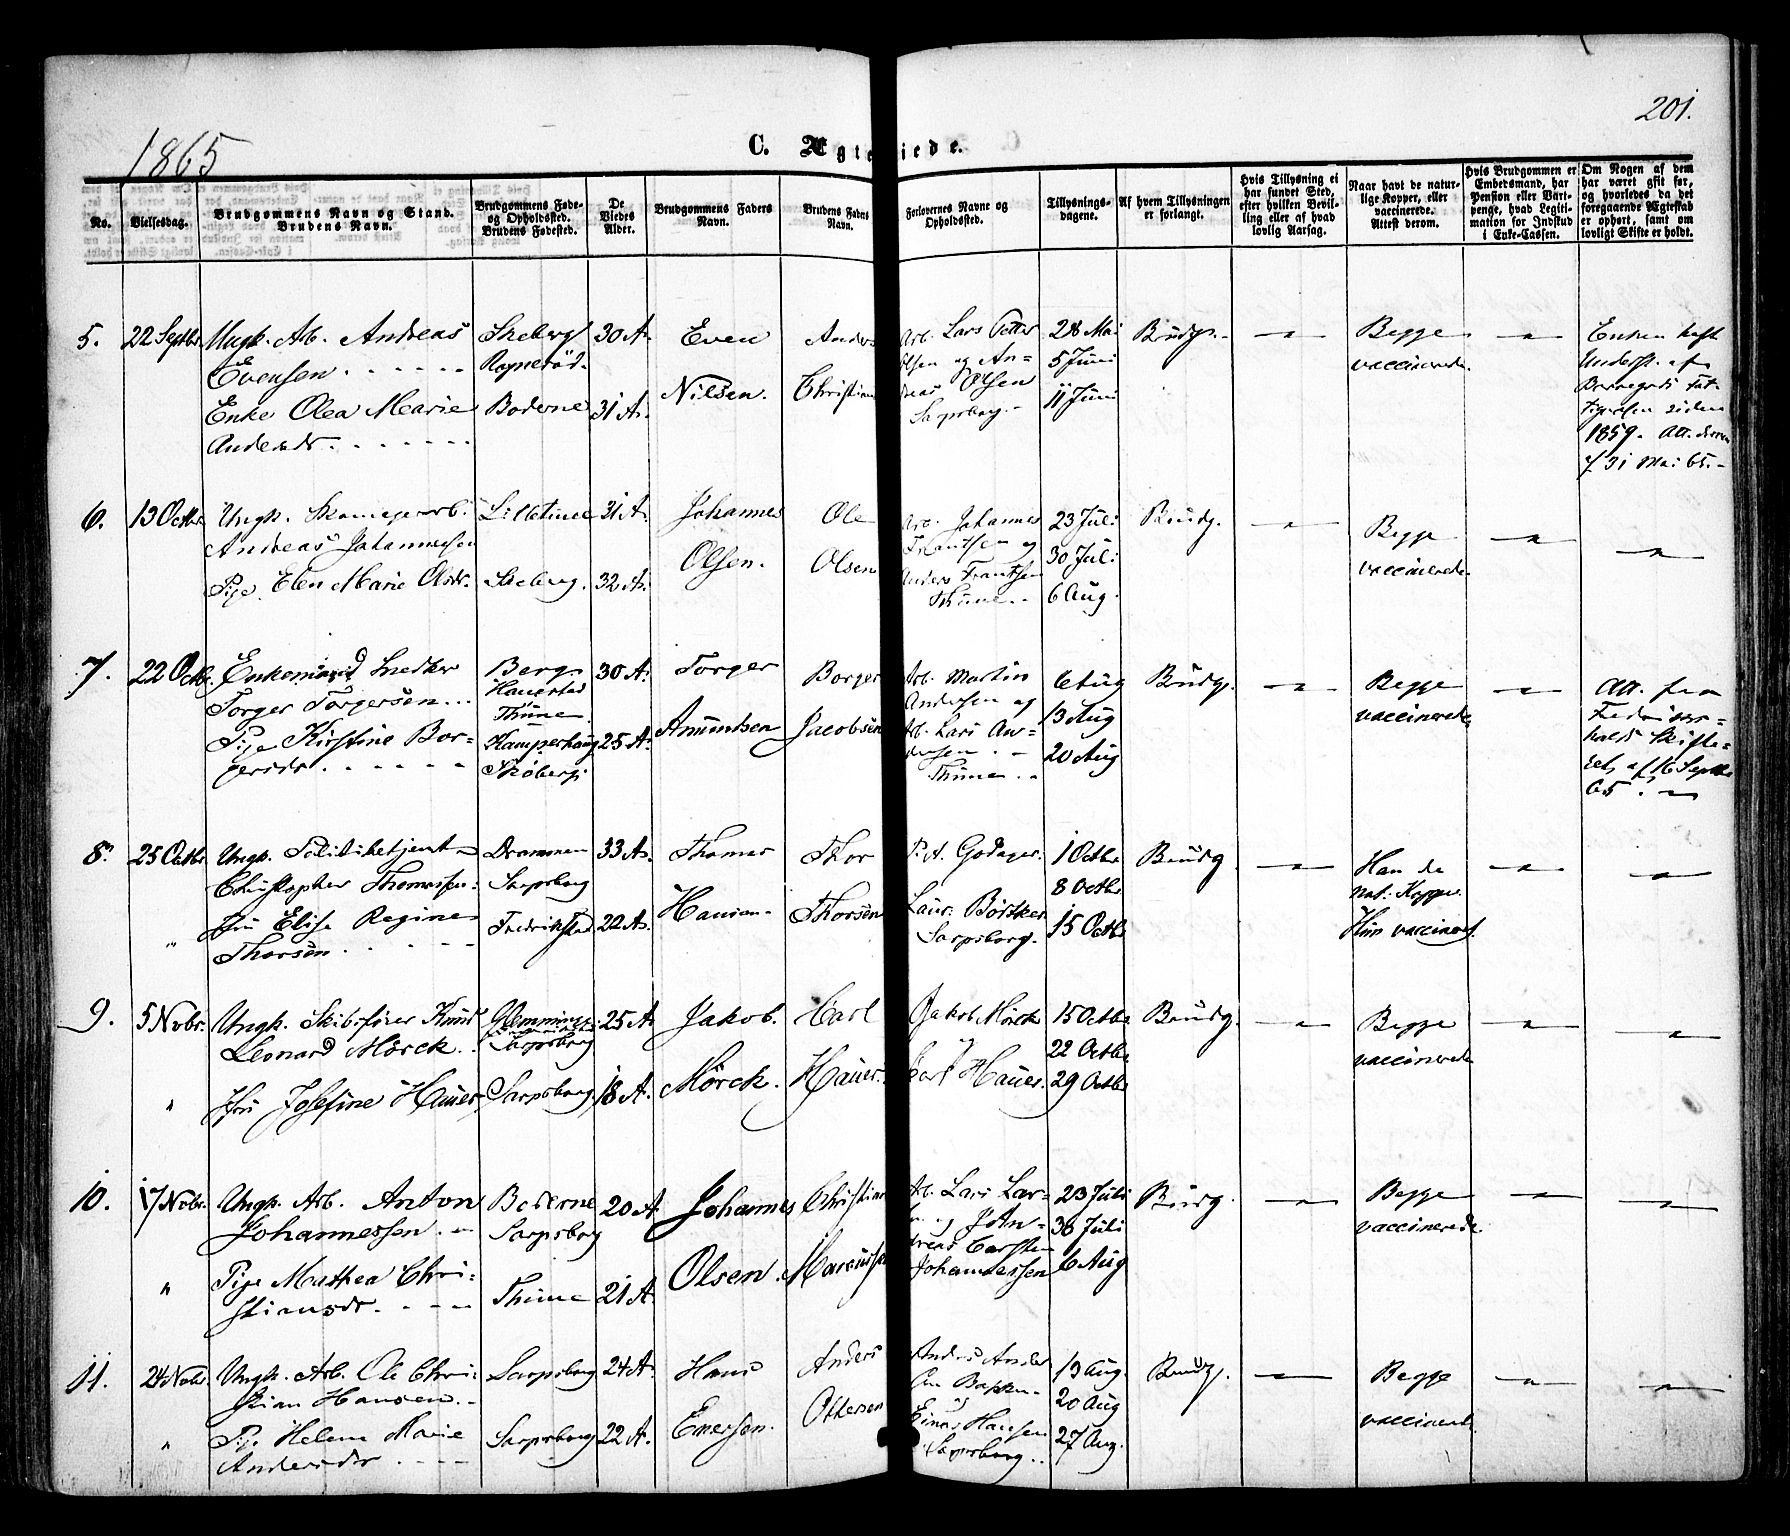 1865
201.
C. Ægteviede.
No.
Vielsesdag.
Brudgommens Navn og Stand.
Brudens Navn.
Brudgommens Føde-
og Opholdssted.
Brudens Fødested.
De
Viedes
Alder.
Brudgommens Faders
Navn.
Brudens Faders
Navn.
Forlovernes Navne og
Opholdssted.
Tillysnings-
dagene.
Af hvem Tillysningen
er forlangt.
Hvis Tillysning ei
har fundet Sted,
efter hvilken Bevil-
ling eller af hvad
lovlig Aarsag.
Naar havt de natur-
lige Kopper, eller
vaccinerede.
Attest derom.
Hvis Brudgommen er
Embedsmand, har
Pension eller Vart-
penge, hvad Legiti-
mation for Indskud
i Enke-Cassen.
Om Nogen af dem
har været gift før,
og hvorledes da det
foregaaende Ægteskab
er ophørt, samt om
lovligt Skifte er holdt.
5. 22 Septbr.
Ungk. Arb. Andreas
Evensen
Enke Olea Marie
Andersdr.
Skeberg
Boderne
30 A.
31 A.
Even
Nilsen.
Anders
Christian
Arb. Lars Petter
Olsen og An-
dreas Olsen
Sarpsborg.
28 Mai
5 Juni
11 Juni
Brudg.
Begge
vaccinerede.
Enken havt
siden
1859. Att. derom
af 31 Mai 65.
6. 13 Octbr.
Ungk.
Andreas Johannesen
Pige Elen Marie Olsdr.
Skeberg.
31 A.
32 A.
Johannes
Olsen.
Ole
Olsen
Arb. Johannes
Frantsen og
Anders Frantsen
Thune.
23 Juli
30 Juli
6 Aug.
Brudg.
Begge
vaccinerede.
7. 22 Octb.
Enkemand Snedker
Torger Torgersen
Pige Kirstine Bor-
gersdr.
Berg
Thune
Skeberg
30 A.
25 A.
Torger
Amundsen
Borger
Jacobsen
Arb. Martin
Andersen og
Arb. Lars An-
dersen
Thune
6 Aug
13 Aug
20 Aug
Brudg.
Begge
vaccinerede
Att. fra
Fredriks-
halds Skifte-
ret, af 16 Septbr
65.
8. 25 Octbr.
Ungk. Politibetjent
Christopher Thomassen
Jfru Elise Regine
Thorsen
Drammen
Sarpsborg
Fredrikstad
33 A.
22 A.
Thomas
Hansen
Thor
Thorsen
P. A. Godager.
Laur. Bøttker
Sarpsborg.
1 Octbr
8 Octbr
15 Octbr
Brudg.
Han de
nat. Kopper.
Hun vaccineret.
9. 5 Nobr.
Ungk. Skibsfører Knud
Leonard Mörck
Jfru Josefine Hauer
Glemminge
Sarpsborg
Sarpsborg
25 A.
18 A.
Jakob.
Mörck.
Karl
Hauer.
Jakob Mörck
Carl Hauer.
15 Octbr
22 Octbr
29 Octbr
Brudg.
Begge
vaccinerede
10. 17 Nobr.
Ungk. Arb. Anton
Johannessen
Pige Mathea Chri-
stiansdr.
Boderne
Sarpsborg
Thune
20 A.
21 A.
Johannes
Olsen.
Christian
Marcussen
Arb. Lars Lar-
sen og An-
dreas Carsten
Johannessen
23 Juli
30 Juli
6 Aug
Brudg.
Begge
vaccinerede.
11. 24 Nobr.
Ungk. Arb. Ole Chri-
stian Hansen
Pige Helene Marie
Andersdr.
Sarpsborg
Sarpsborg
24 A.
22 A.
Hans
Enersen.
Anders
Ottersen
Anders Ander-
sen Bakken
og
Einar Hansen
Sarpsborg
13 Aug.
20 Aug
27 Aug.
Brudg.
Begge
vaccineret